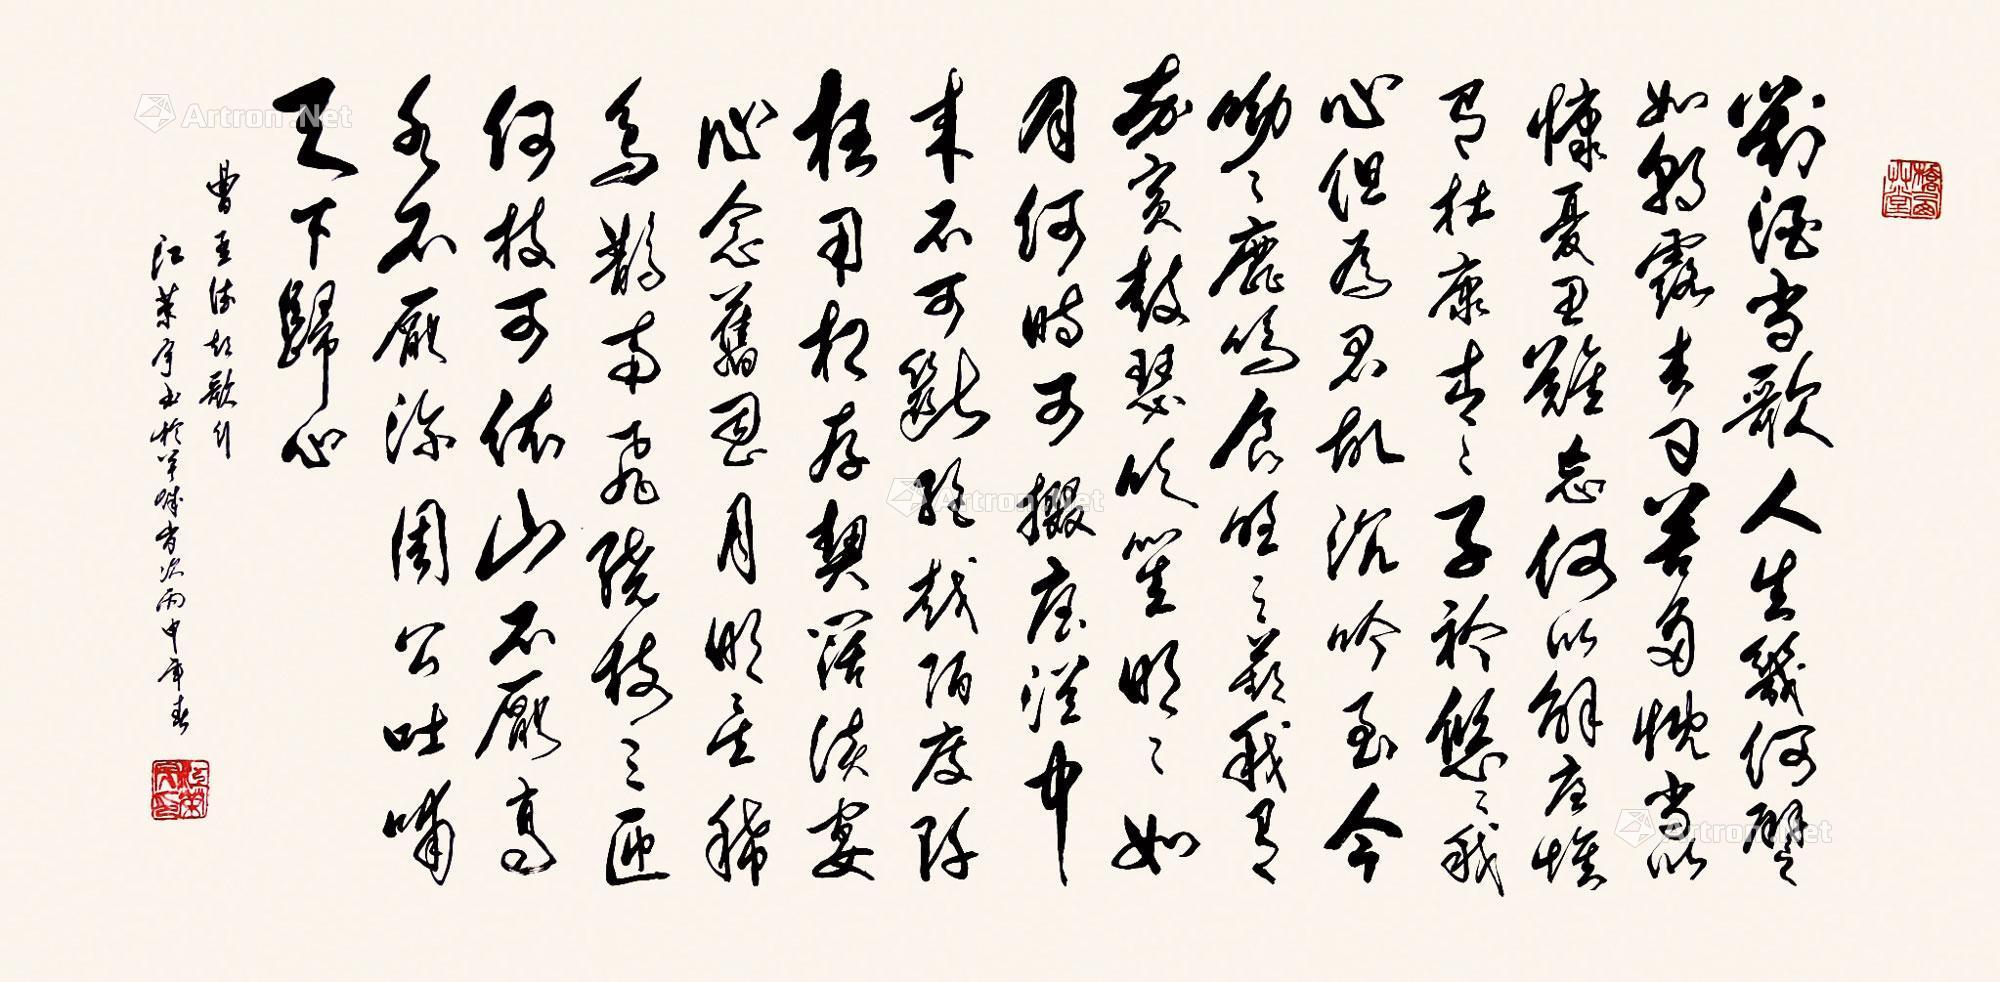 對酒當歌人生幾何譬
如朝露去日苦多慨當以
慷憂思難忘何以解憂惟
有杜康青々子衿悠々我
心但為君故沉吟至今
呦々鹿鳴食野之苹我有
嘉賓鼓瑟吹笙明々如
月何時可掇憂從中
來不可斷絕越陌度阡
枉用相存契闊談宴
心念舊恩月明星稀
烏鵲南飛繞枝三匝
何枝可依山不厭高
水不厭深周公吐哺
天下歸心
曹孟德短歌行
書於羊城歲次丙申年春
Artron.Net
Artron.Net
Artron.Net